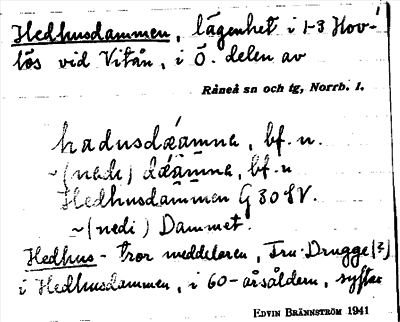 Hedhusdammen, lägenhet i 1-3 Hov-
lös vid Vitån, i Ö. delen av
Råneå sn och tg, Norrb. l.
hadusdæ̀amna, bf. n.
~(nedi) dæ̀amna, bf. n
Hedhusdammen G 30 SV.
~(nedi) Dammet.
Hedhus- tror meddelaren, Fru Drugge(?)
i Hedhusdammen, i 60-årsåldern, syftar
EDVIN BRÄNNSTRÖM 1941